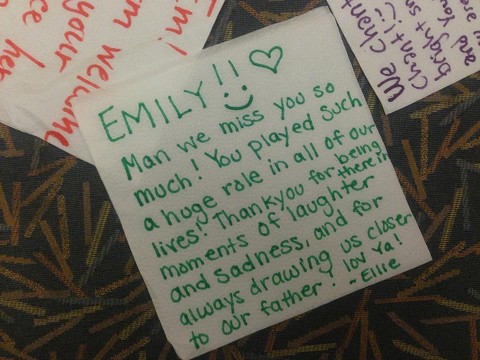 EMILY!! ♡
Man we miss you so
much! You played such
a huge role in all of our
lives! Thankyou for being
there in
moments of laughter
and sadness, and for
always drawing us closer
to our father! lov ya!
-Ellie
welcome
your
We chant
bright
and